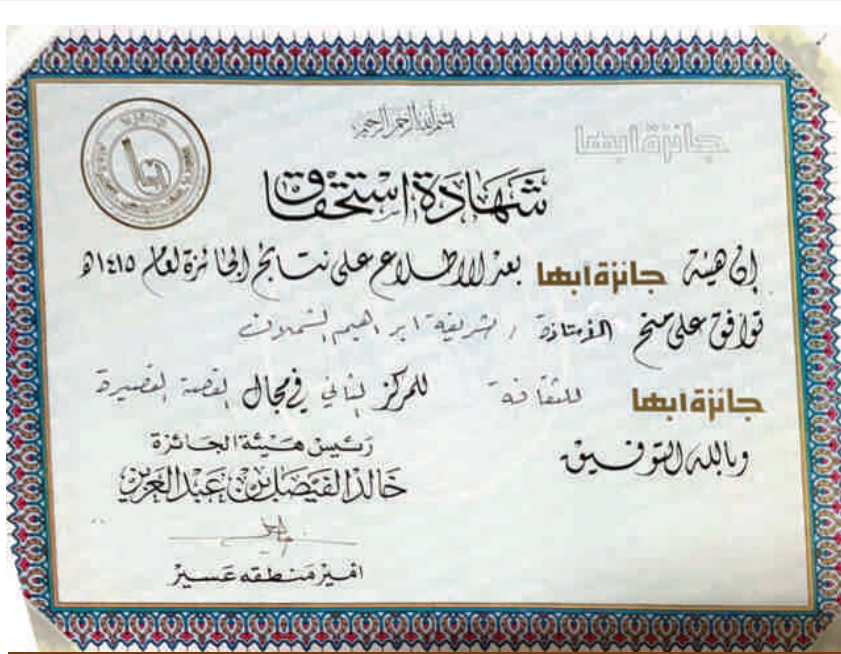 بسم الله الرحمن الرحيم
جائزة ابها
ابها
شهادة استحقاق
إن هيئة جائزة ابها بعد الاطلاع على نتائج الجائزة لعام ١٤١٥هـ
توافق على منح الأستاذة / شريفة ابراهيم الشملان
جائزة ابها للثقافة للمركز الثاني في مجال القصة القصيرة
وبالله التوفيق
رئيس هيئة الجائزة
خالد الفيصل بن عبد العزيز
امير منطقه عسير